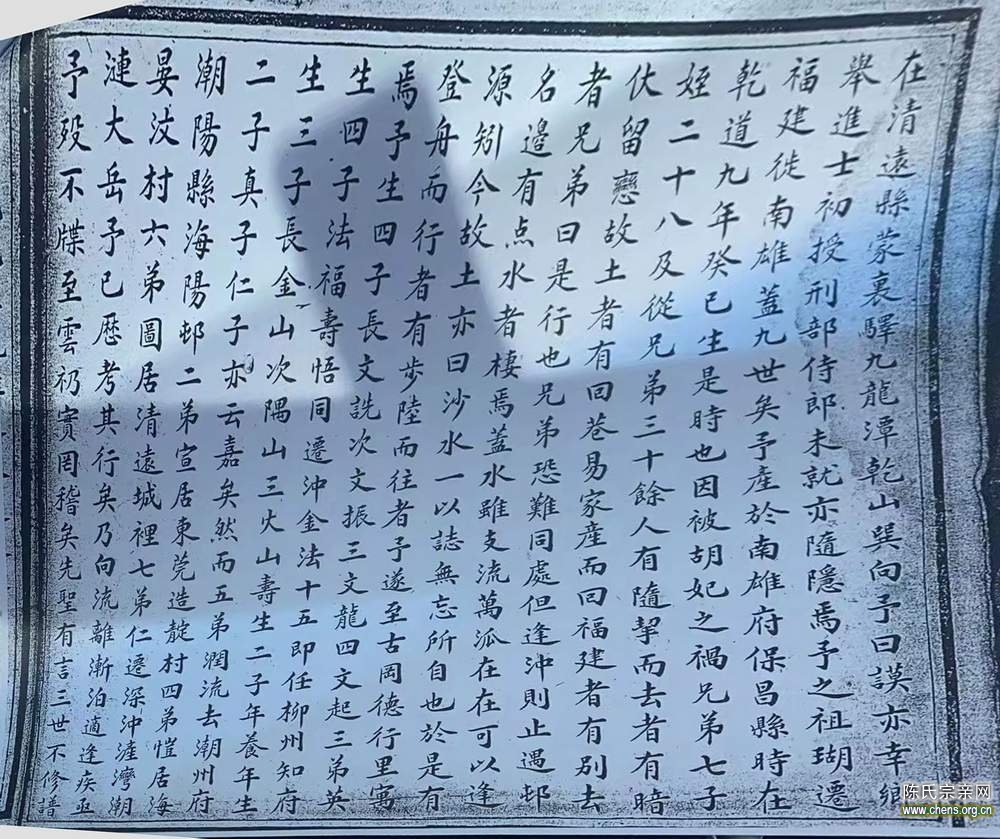 在清遠縣蒙裏驛九龍潭乾山巽向予曰謨亦幸鄉
舉進士初授刑部侍郎未就亦隨隱焉予之祖瑚遷
福建徙南雄蓋九世矣予產於南雄府保昌縣時在
乾道九年癸巳生是時也因被胡妃之禍兄弟七子
姪二十八及從兄弟三十餘人有隨挈而去者有暗
伏留戀故土者有回巷易家產而回福建者有別去
者兄弟曰是行也兄弟恐難同處但逢沖則止遇邨
名邊有点水者棲焉蓋水雖支流萬派在在可以逢
源矧今故土亦曰沙水一以誌無忘所自也於是有
登舟而行者有步陸而往者予遂至古岡德行里寓
焉予生四子長文詵次文振三文龍四文起三弟英
生四子法福壽悟同遷沖金法十五即任柳州知府
生三子長金山次隅山三火山壽生二子年養年生
二子真子仁子亦云嘉矣然而五弟潤流去潮州府
潮陽縣海陽邨二弟宣居東莞造靛村四弟愷居海
晏汶村六弟圖居清遠城裡七弟仁遷深沖滘灣潮
漣大岳予已歷考其行矣乃向流離漸泊適逢疾亟
予歿不牒至雲礽實罔稽矣先聖有言三世不修譜
陈氏宗亲网
www.chens.org.cn